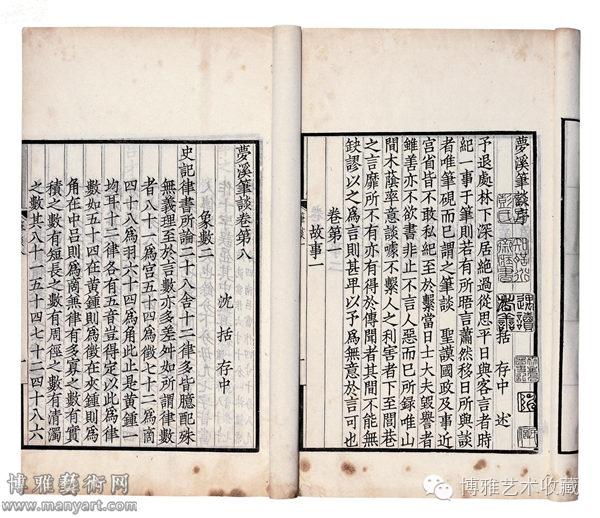 夢溪筆談序
括 存中 述
予退處林下深居絕過從思平日與客言者時
紀一事于筆則若有所晤言蕭然移日所與談
者唯筆硯而已謂之筆談 聖謨國政及事近
宮省皆不敢私紀至於繫當日士大夫毀譽者
雖善亦不欲書非止不言人惡而已所錄唯山
間木蔭率意談噱不繫人之利害者下至閭巷
之言靡所不有亦有得於傳聞者其間不能無
缺謬以之爲言則甚卑以予爲無意於言可也
卷第一
故事一
夢溪筆談卷第八
沈括 存中
象數二
史記律書所論二十八舍十二律多皆臆配殊
無義理至於言數亦多差舛如所謂律數
者八十一爲宮五十四爲徵七十二爲商
四十八爲羽六十四爲角此止是黃鍾一
均耳十二律各有五音豈得定以此爲律
數如五十四在黃鍾則爲徵在夾鍾則爲
角在中呂則爲商兼律有多寡之數有實
積之數有短長之數有周徑之數有清濁
之數其八十一五十四七十二四十八六
博雅藝術网
www.manyart.com
博雅艺术收藏